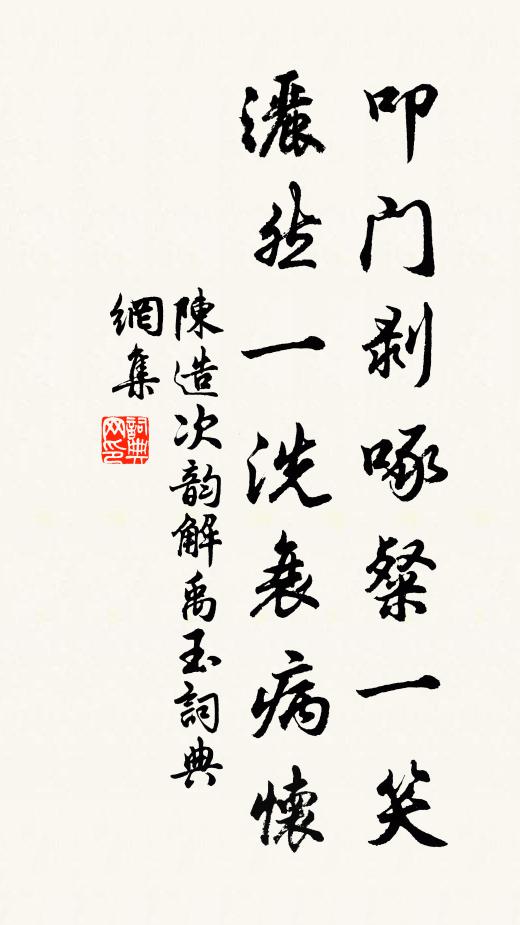 叩门剥啄粲一笑
灑然一洗衰病懷
陳造次韵解禹玉詞典
網集
詞典網印